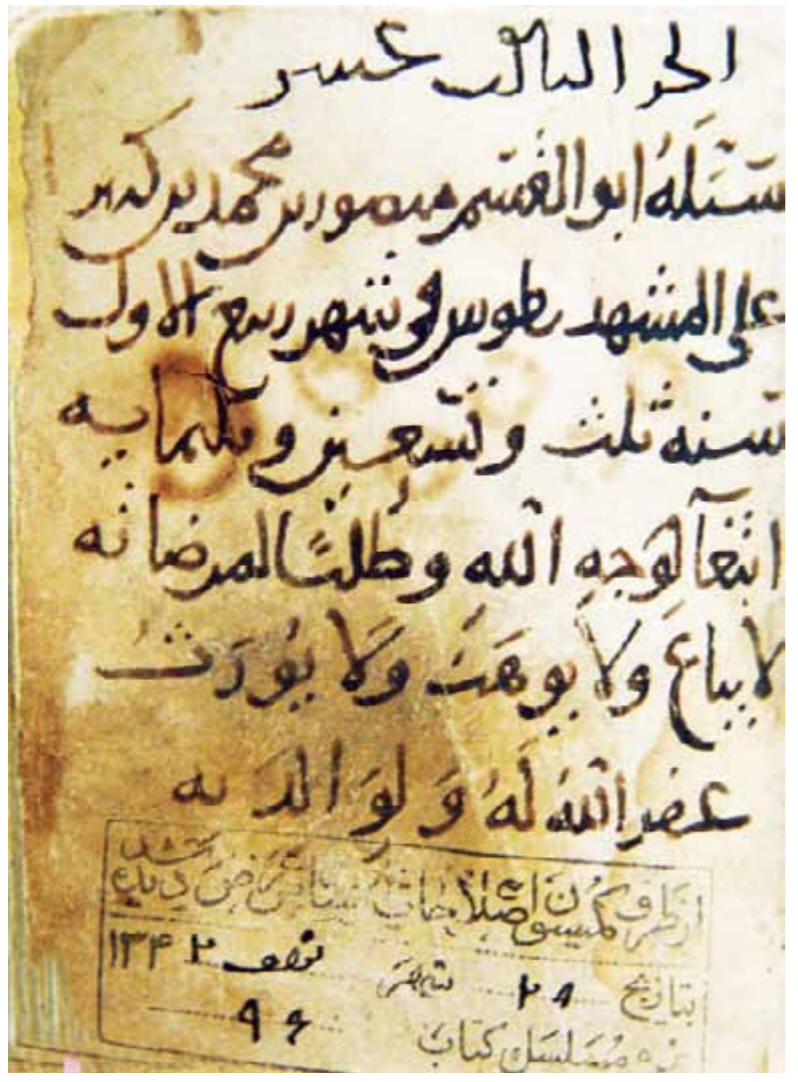 الجزء الثالث عشر
سبّله ابو القسم منصور بن محمد بن كثير
على المشهد بطوس في شهر ربيع الاول
سنة ثلث وتسعين وثلثمايه
ابتغآ لوجه الله وطلبًا لمرضاته
لا يباع ولا يوهب ولا يورث
غفر الله له ولوالديه
از طرف کمیسیون اصلاحات دیده شد
بتاریخ ۲۹ شهر ۱۳۴۲
نمره مسلسل کتاب ۹۶